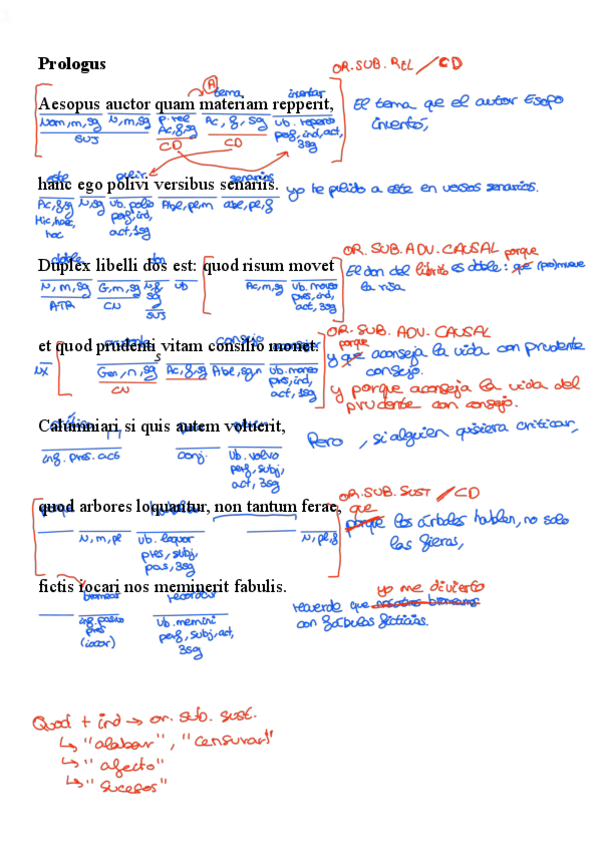 Prologus
OR.SUB. REL / CD
A
tema inventar
Aesopus auctor quam materiam repperit, El tema que el autor Esopo
Nom, m, sg N, m, sg P. rel Ac, f, sg vb. reperio inventó,
Ac, f, sg perf, ind, act, 3sg
SUJ CD CD
este pulir senarios
hanc ego polivi versibus senariis. yo te pulido a este en versos senarios.
Ac, f, sg N, sg vb. polio Abl, pl, m abl, pl, f
Hic, haec, hoc perf, ind, act, 1sg
OR. SUB. ADV. CAUSAL porque
doble don
Duplex libelli dos est: quod risum movet El don del librito es doble: que (pro)mueve
N, m, sg G, m, sg N, f, sg vb Ac, m, sg vb. moveo la risa
pres, ind, act, 3sg
ATR CN SUJ
OR. SUB. ADV. CAUSAL
prudente consejo aconsejar porque
et quod prudenti vitam consilio monet. y que aconseja la vida con prudente
s consejo.
NX Gen, n, sg Ac, f, sg Abl, sg, n vb. moneo
pres, ind, act, 1sg
CN
y porque aconseja la vida del
prudente con consejo.
Calumniari si quis autem voluerit, Pero , si alguien quisiera criticar,
inf. pres. act conj. vb. volvo
perf, subj, act, 3sg
OR. SUB. SUST / CD
quod arbores loquantur, non tantum ferae, que
porque los árboles hablen, no solo
N, m, pl vb. loquor N, pl, f las fieras,
pres, subj, pas, 3sg
fictis iocari nos meminerit fabulis. yo me divierto
bromear recordar recuerde que nosotros bromeamos
inf. pasivo vb. memini con fábulas ficticias.
pres perf, subj, act, 3sg
(iocor)
Quod + ind → or. sub. sust.
↳ "alabar", "censurar"
↳ "afecto"
↳ "sucesos"